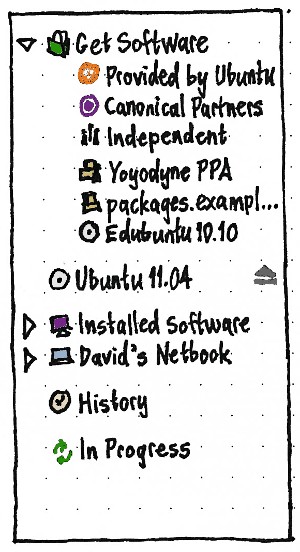 Get Software
Provided by Ubuntu
Canonical Partners
Independent
Yoyodyne PPA
packages.exampl...
Edubuntu 10.10
Ubuntu 11.04
Installed Software
David's Netbook
History
In Progress